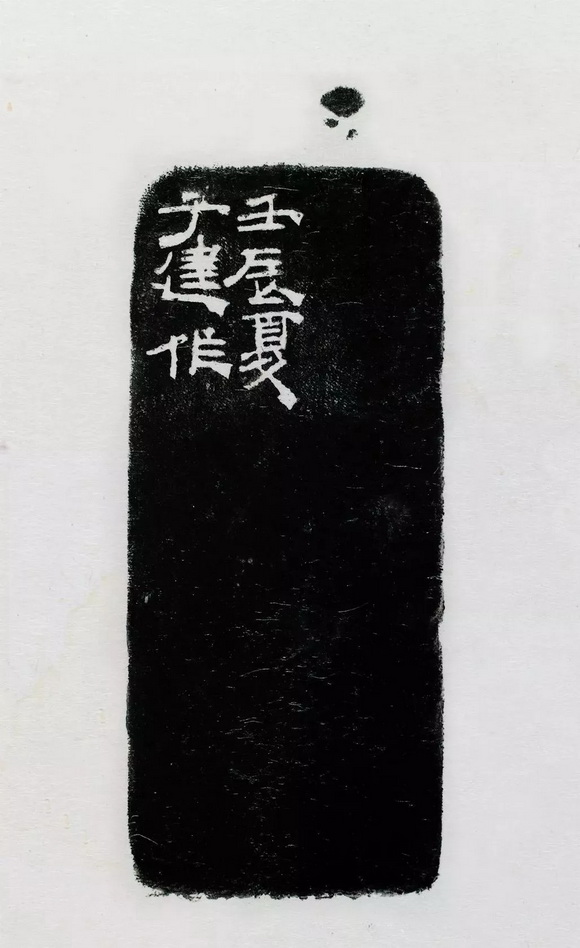 壬辰夏
子建作